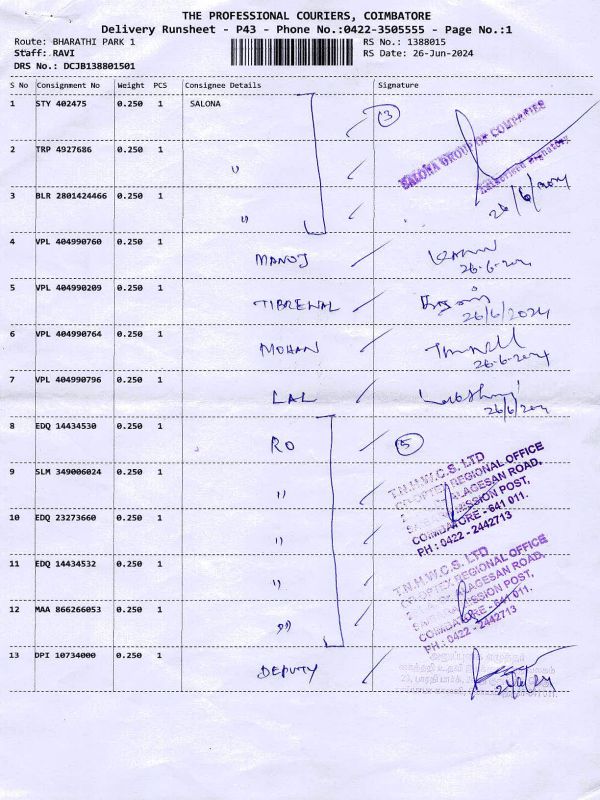 THE PROFESSIONAL COURIERS, COIMBATORE
Delivery Runsheet - P43 - Phone No.:0422-3505555 - Page No.:1
Route: BHARATHI PARK 1 RS No.: 1388015
Staff: RAVI RS Date: 26-Jun-2024
DRS No.: DCJB138801501
S No Consignment No Weight PCS Consignee Details Signature
1 STY 402475 0.250 1 SALONA 3
SALONA GROUP OF COMPANIES
2 TRP 4927686 0.250 1 " Authorised Signatory
3 BLR 2801424466 0.250 1 " 26/6/2024
4 VPL 404990760 0.250 1 MANOJ
26.6.202
5 VPL 404990209 0.250 1 TIBREWAL
26/6/2024
6 VPL 404990764 0.250 1 MOHAN
26.6.2024
7 VPL 404990796 0.250 1 LAL
26/6/202
8 EDQ 14434530 0.250 1 RO 5
T.N.H.W.C.S. LTD
COOPTEX REGIONAL OFFICE
9 SLM 349006024 0.250 1 " ALAGESAN ROAD,
SAIBABA MISSION POST,
10 EDQ 23273660 0.250 1 " COIMBATORE - 641 011.
PH : 0422 - 2442713
T.N.H.W.C.S. LTD
COOPTEX REGIONAL OFFICE
11 EDQ 14434532 0.250 1 " ALAGESAN ROAD,
SAIBABA MISSION POST,
12 MAA 866266053 0.250 1 " COIMBATORE - 641 011.
PH : 0422 - 2442713
13 DPI 10734000 0.250 1 DEPUTY